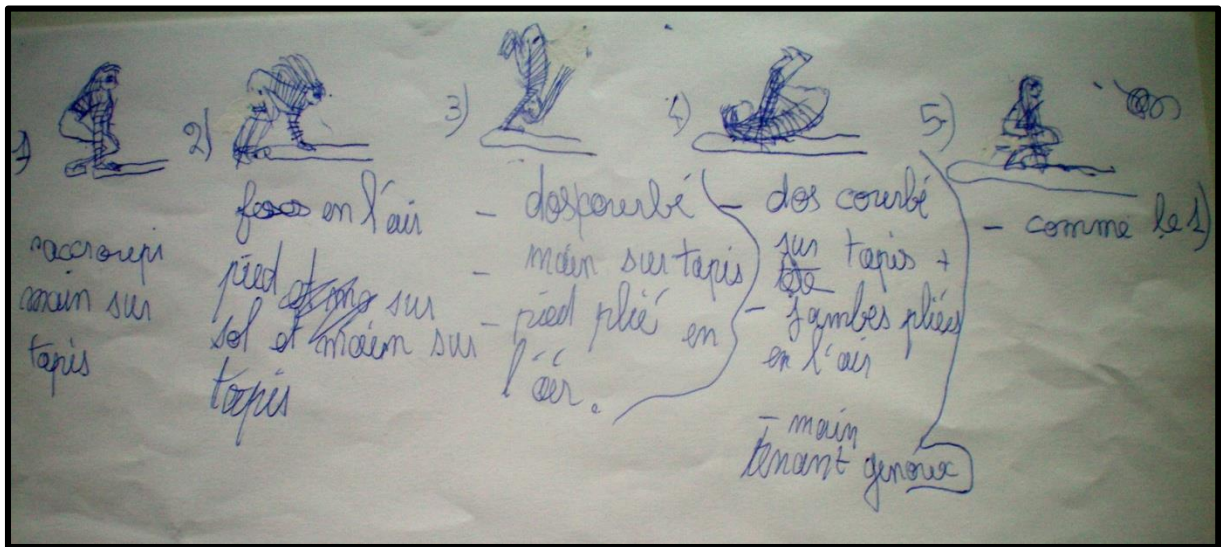 1)
accroupi
main sur
tapis
2)
en l'air
pied sur
sol et main sur
tapis
3)
- dos courbé
- main sur tapis
- pied plié en
l'air.
4)
- dos courbé
sur tapis +
- jambes pliées
en l'air
- main
tenant genoux
5)
- comme le 1)